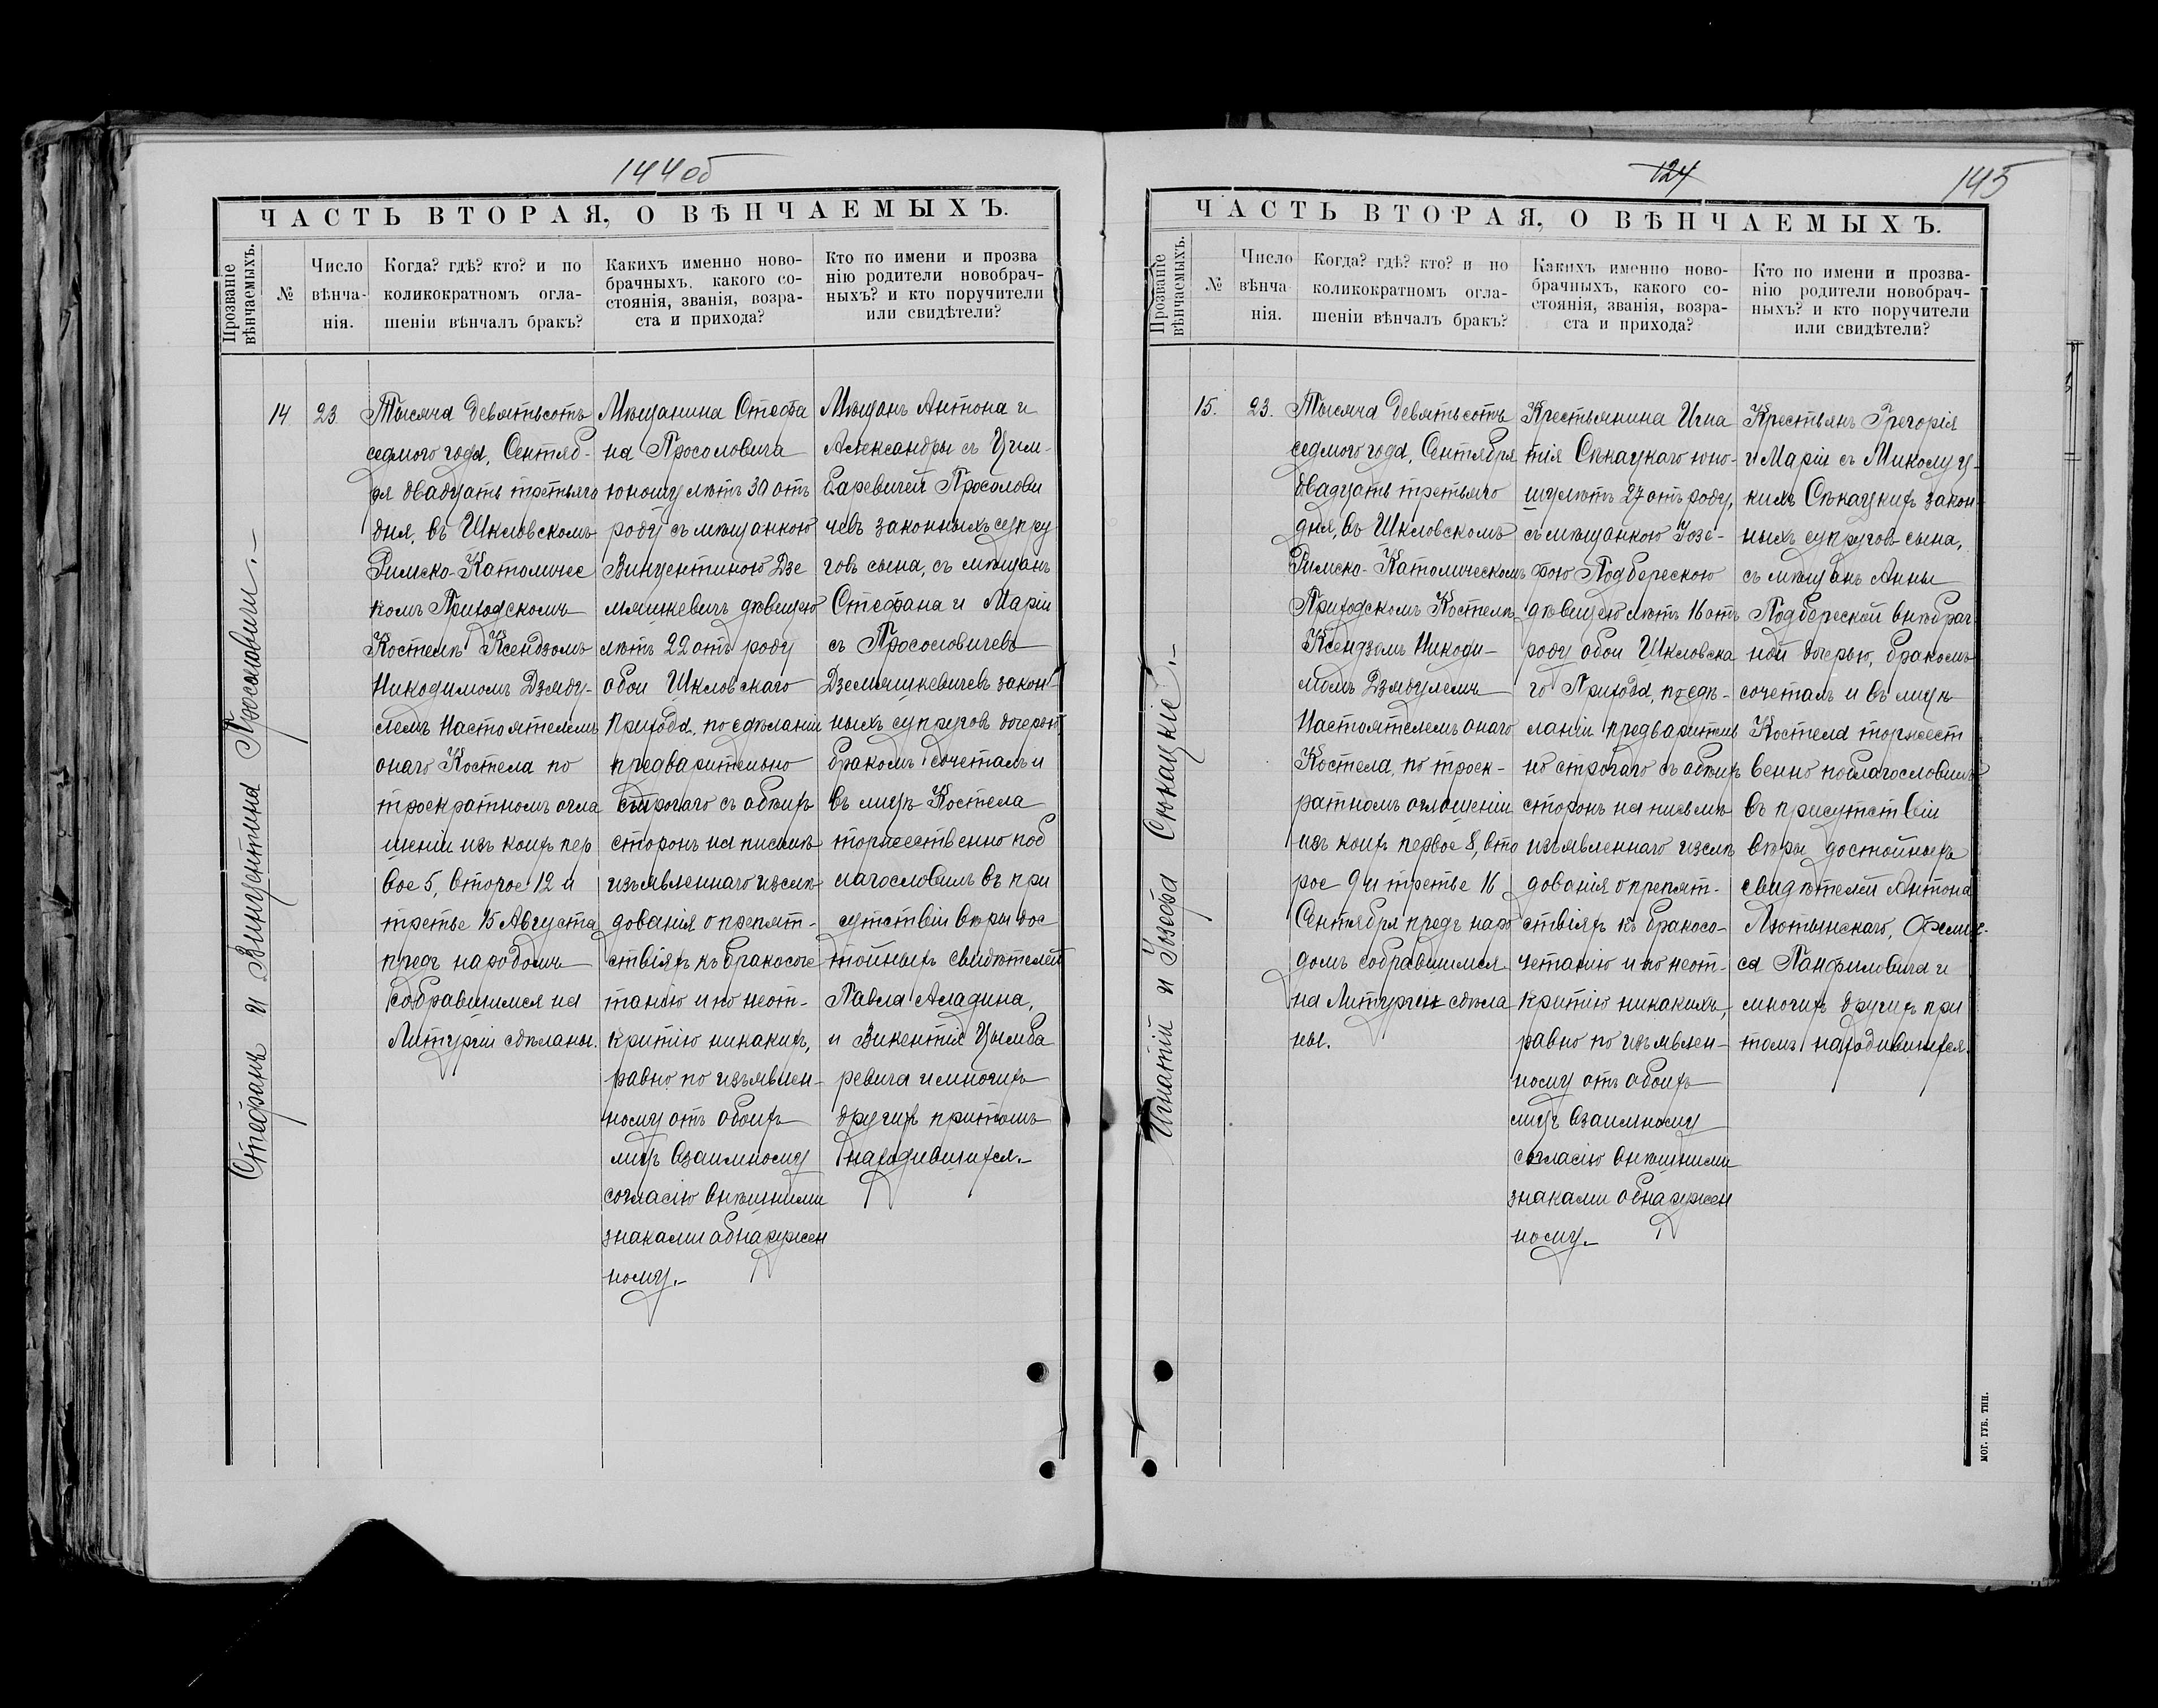 144об
ЧАСТЬ ВТОРАЯ, О ВѢНЧАЕМЫХЪ.
Прозваніе вѣнчаемыхъ.
№
Число
вѣнча-
нія.
Когда? гдѣ? кто? и по
коликократномъ огла-
шеніи вѣнчалъ бракъ?
Какихъ именно ново-
брачныхъ. какого со-
стоянія, званія, возра-
ста и прихода?
Кто по имени и прозва
нію родители новобрач-
ныхъ? и кто поручители
или свидѣтели?
Стефанъ и Винцентина Просоловичи.-
14
23.
Тысяча девятьсотъ
седмого года, Сентяб-
ря двадцать третьяго
дня, въ Шкловскомъ
Римско-Католичес
комъ Приходскомъ
Костелѣ Ксендзомъ
Никодимомъ Дзяду-
лемъ Настоятелемъ
онаго Костела по
троекратномъ огла
шеніи изъ коихъ пер
вое 5, второе 12 и
третье 15 Августа
предъ народомъ
собравшимся на
Литургіи сдѣланы.
Мѣщанина Стефа
на Просоловича
юношу лѣтъ 30 отъ
роду съ мѣщанкою
Винцентиною Дзе
мяшкевичъ дѣвицею
лѣтъ 22 отъ роду
обои Шкловскаго
Прихода, по сдѣланіи
предварительно
строгаго съ обѣихъ
сторонъ на письмѣ
изъявленнаго изслѣ
дованія о препят-
ствіяхъ къ бракосоче
танію и по неот-
критію никакихъ,
равно по изъявлен-
ному отъ обоихъ
лицъ взаимному
согласію внѣшними
знаками обнаружен
ному.-
Мѣщанъ Антона и
Александры съ Цым-
баревичей Просолови
чевъ законныхъ супру
говъ сына, съ мѣщанъ
Стефана и Маріи
съ Просоловичевъ
Дземяшкевичевъ закон-
ныхъ супруговъ дочерью
бракомъ сочеталъ и
въ лицѣ Костела
торжественно поб
лагословилъ въ при
сутствіи вѣры дос
тойныхъ свидѣтелей
Павла Аладина,
и Викентія Цымба
ревича и многихъ
другихъ притомъ
находившихся.-
124
145
ЧАСТЬ ВТОРАЯ, О ВѢНЧАЕМЫХЪ.
Прозваніе вѣнчаемыхъ.
№
Число
вѣнча
нія.
Когда? гдѣ? кто? и по
коликократномъ огла-
шеніи вѣнчалъ бракъ?
Какихъ именно ново-
брачныхъ, какого со-
стоянія, званія, возра-
ста и прихода?
Кто по имени и прозва-
нію родители новобрач-
ныхъ? и кто поручители
или свидѣтели?
Игнатій и Іозефа Сѣкацкіе.-
15.
23.
Тысяча девятьсотъ
седмого года, Сентября
двадцать третьяго
дня, въ Шкловскомъ
Римско-Католическомъ
Приходскомъ Костелѣ
Ксендзомъ Никоди-
момъ Дзядулемъ
Настоятелемъ онаго
Костела, по троек-
ратномъ оглошеніи
изъ коихъ первое 8, вто
рое 9 и третье 16
Сентября предъ наро
домъ собравшимся
на Литургіи сдѣла
ны.
Крестьянина Игна
тія Сѣкацкаго юно-
шу лѣтъ 27 отъ роду,
съ мѣщанкою Іозе-
фою Подберескою
дѣвицею лѣтъ 16 отъ
роду обои Шкловска
го Прихода, по сдѣ-
ланіи предваритель
но строгаго съ обѣихъ
сторонъ на письмѣ
изъявленнаго изслѣ
дованія о препят-
ствіяхъ къ бракосо-
четанію и по неот-
критію никакихъ,
равно по изъявлен-
ному отъ обоихъ
лицъ взаимному
согласію внѣшними
знаками обнаружен
ному.-
Крестьянъ Грегорія
и Маріи съ Миколуц-
кихъ Сѣкацкихъ закон-
ныхъ супруговъ сына,
съ мѣщанъ Анны
Подберской внѣбрач
ной дочерью, бракомъ
сочеталъ и въ лицѣ
Костела торжест
венно поблагословилъ
въ присутствіи
вѣры достойныхъ
свидѣтелей Антона
Лютынскаго, Феликс-
са Панфиловича и
многихъ другихъ при
томъ находившихся.
МОГ. ГУБ. ТИП.